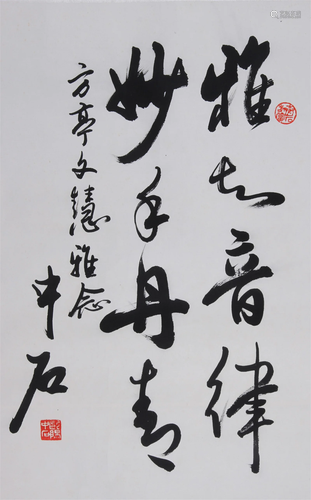 雅知音律
妙手丹青
方亭文懿雅念
中石